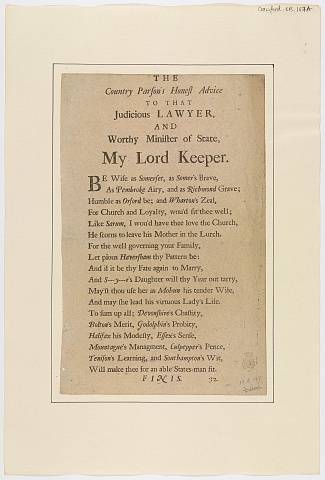 Crawford. EB. 157A
THE
Country Parſon's Honeſt Advice
TO THAT
Judicious LAWYER,
AND
Worthy Miniſter of State,
My Lord Keeper.
BE Wiſe as Somerſet, as Somer's Brave,
As Pembroke Airy, and as Richmond Grave;
Humble as Orford be; and Wharton's Zeal,
For Church and Loyalty, wou'd fit thee well;
Like Sarum, I wou'd have thee love the Church,
He ſcorns to leave his Mother in the Lurch.
For the well governing your Family,
Let pious Haverſham thy Pattern be:
And if it be thy Fate again to Marry,
And S—y—r's Daughter will thy Year out tarry,
May'ſt thou uſe her as Mohun his tender Wife,
And may ſhe lead his virtuous Lady's Life.
To ſum up all; Devonſhire's Chaſtity,
Bolton's Merit, Godolphin's Probity,
Halifax his Modeſty, Eſſex's Senſe,
Mountague's Managment, Culpepper's Pence,
Teniſon's Learning, and Southampton's Wit,
Will make thee for an able States-man fit.
FINIS.
32